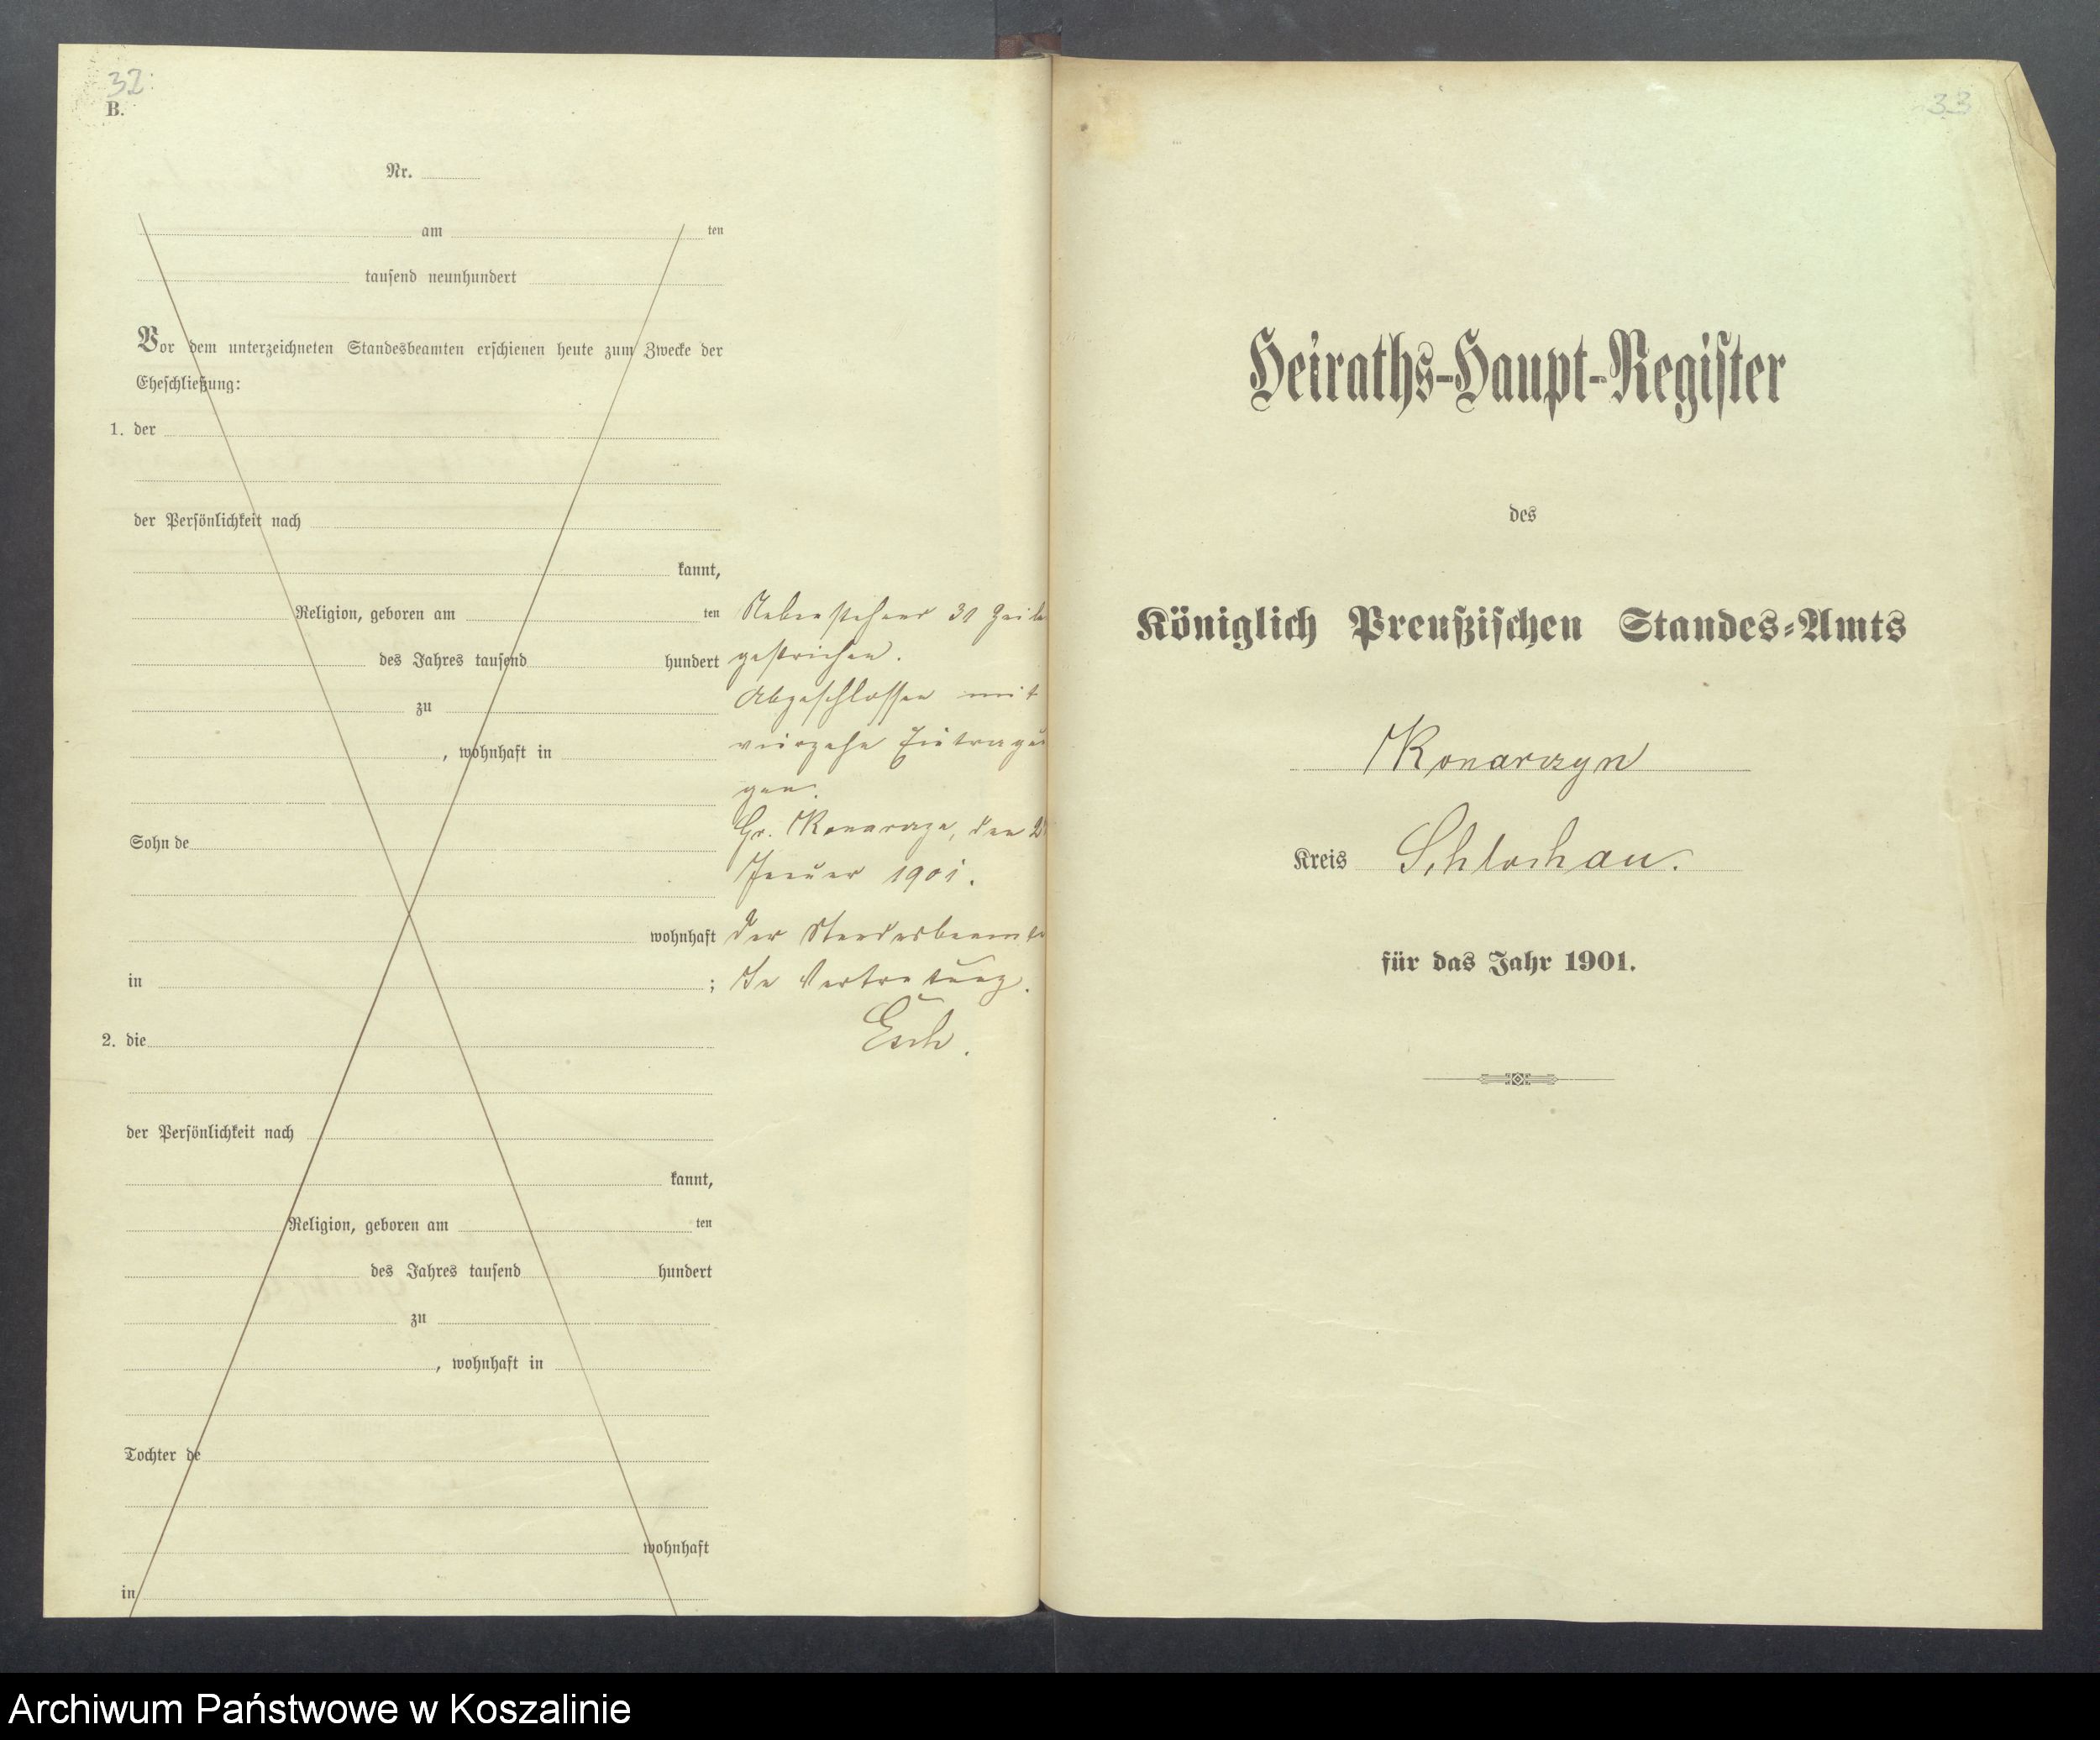 32
B.
Nr.
am ten
tausend neunhundert
Vor dem unterzeichneten Standesbeamten erschienen heute zum Zwecke der
Eheschließung:
1. der
der Persönlichkeit nach
kannt,
Religion, geboren am ten
des Jahres tausend hundert
zu
, wohnhaft in
Sohn de
wohnhaft
in ;
2. die
der Persönlichkeit nach
kannt,
Religion, geboren am ten
des Jahres tausend hundert
zu
, wohnhaft in
Tochter de
wohnhaft
in
Nebenstehend 31
gestrichen.
Abgeschlossen mit
vierzehn
gen.
Gr. Konarczyn, den
Januar 1901.
Der
In Vertretung.
Esch.
33
Heiraths-Haupt-Register
des
Königlich Preußischen Standes-Amts
Konarczyn
Kreis Schlochau.
für das Jahr 1901.
Archiwum Państwowe w Koszalinie